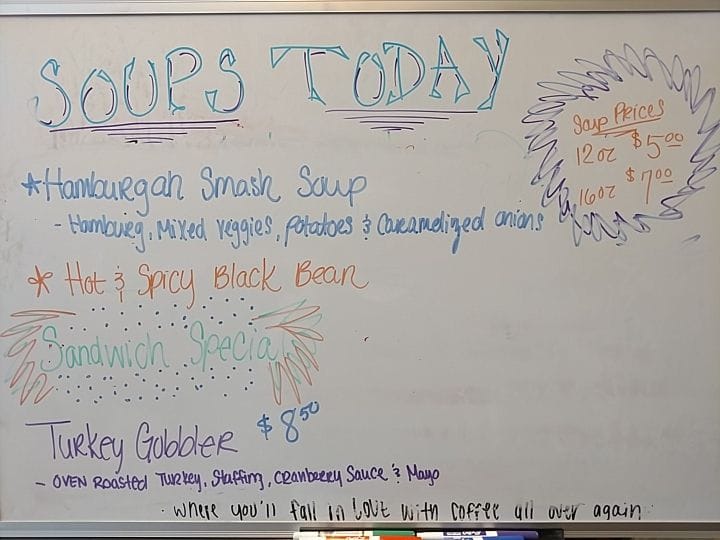 SOUPS TODAY
Soup Prices
12 oz $5.00
16oz $7.00
*Hamburgah Smash Soup
- Hamburg, Mixed veggies, potatoes & Caramelized onions
* Hot & Spicy Black Bean
Sandwich Special
Turkey Gobbler $8.50
- OVEN ROASTED TURKEY, Stuffing, CRANBERRY Sauce & Mayo
· where you'll fall in love with coffee all over again·